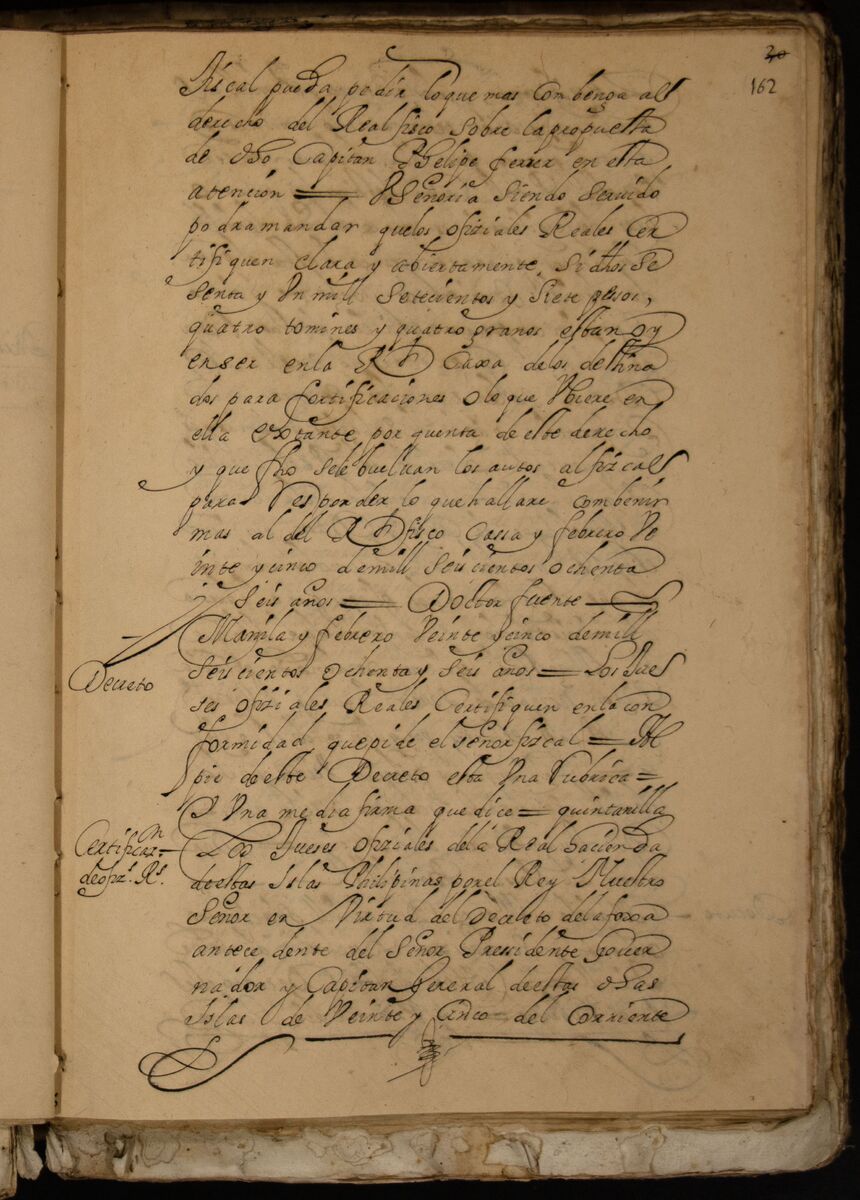 20
162
fiscal pueda podir loque mas Combenga als
derecho del Real fisco sobre lapropuesta
de dho Capitan Phelipe ferrer en esta
atencion = VSeñoria siendo servido
podramandar quelos ofiziales Reales Cer
tifiquen clara y abiertamente, si dhos se
senta y Un mill Setecientos y siete pesos,
quatro tomines y quatro granos estan oy
enser enla Rl Caxa delos destina
dos para fortificaciones o lo que Ubiere en
ella exstante por quenta de este derecho
y que fho sele buelvan los autos alfizcal
para Responder lo que hallare Combenir
mas al del Rl fisco Cassa y febrero Ve
inte y cinco demill seiscientos ochenta
y seis años = Doctor fuente =
Manila y febrero Veinte Icinco demill
Decreto
seiscientos ochenta y seis años = Los Jue
ses ofiziales Reales Certifiquen enla con
formidad quepide el señor fiscal = Al
pie deeste Decreto esta Una rubrica =
Y Una media firma que dice = quintanilla
Certificazn
deofizs Rs.
Los Jueses ofiziales dela Real hacienda
deestas Islas Philipinas porel Rey Nuestro
Señor en Virtud del Decreto delafoxa
antece dente del Señor Pressidente Gover
nador y Capitan General deestas dhas
Islas de Veinte y Cinco del Corriente